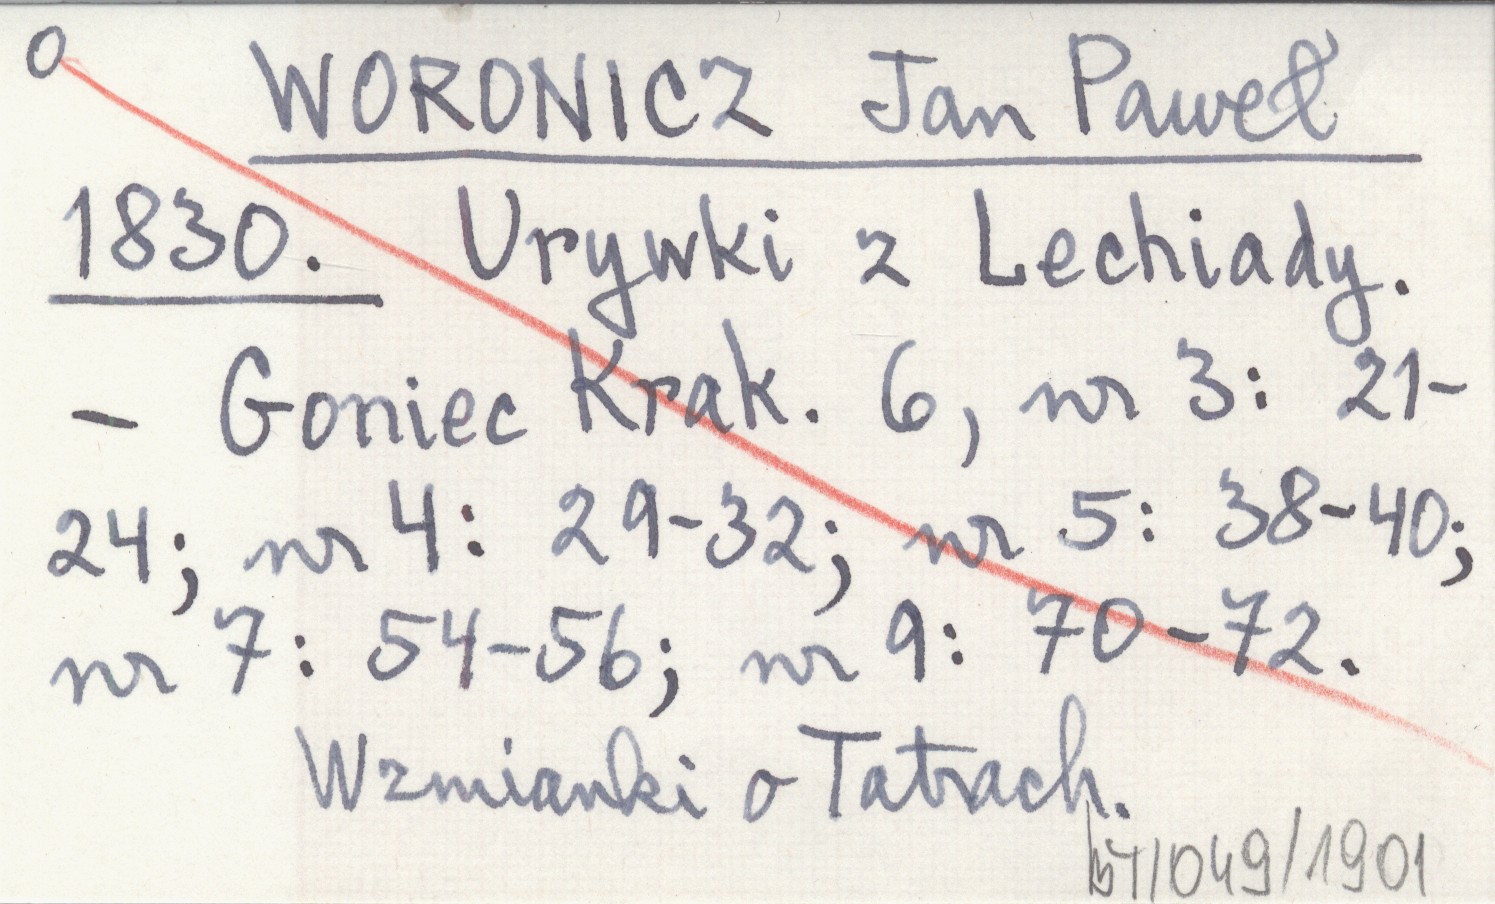 O
WORONICZ Jan Paweł
1830. Urywki z Lechiady.
- Goniec Krak. 6, nr 3: 21-
24; nr 4: 29-32; nr 5: 38-40;
nr 7: 54-56; nr 9: 70-72.
Wzmianki o Tatrach.
BT/049/1901